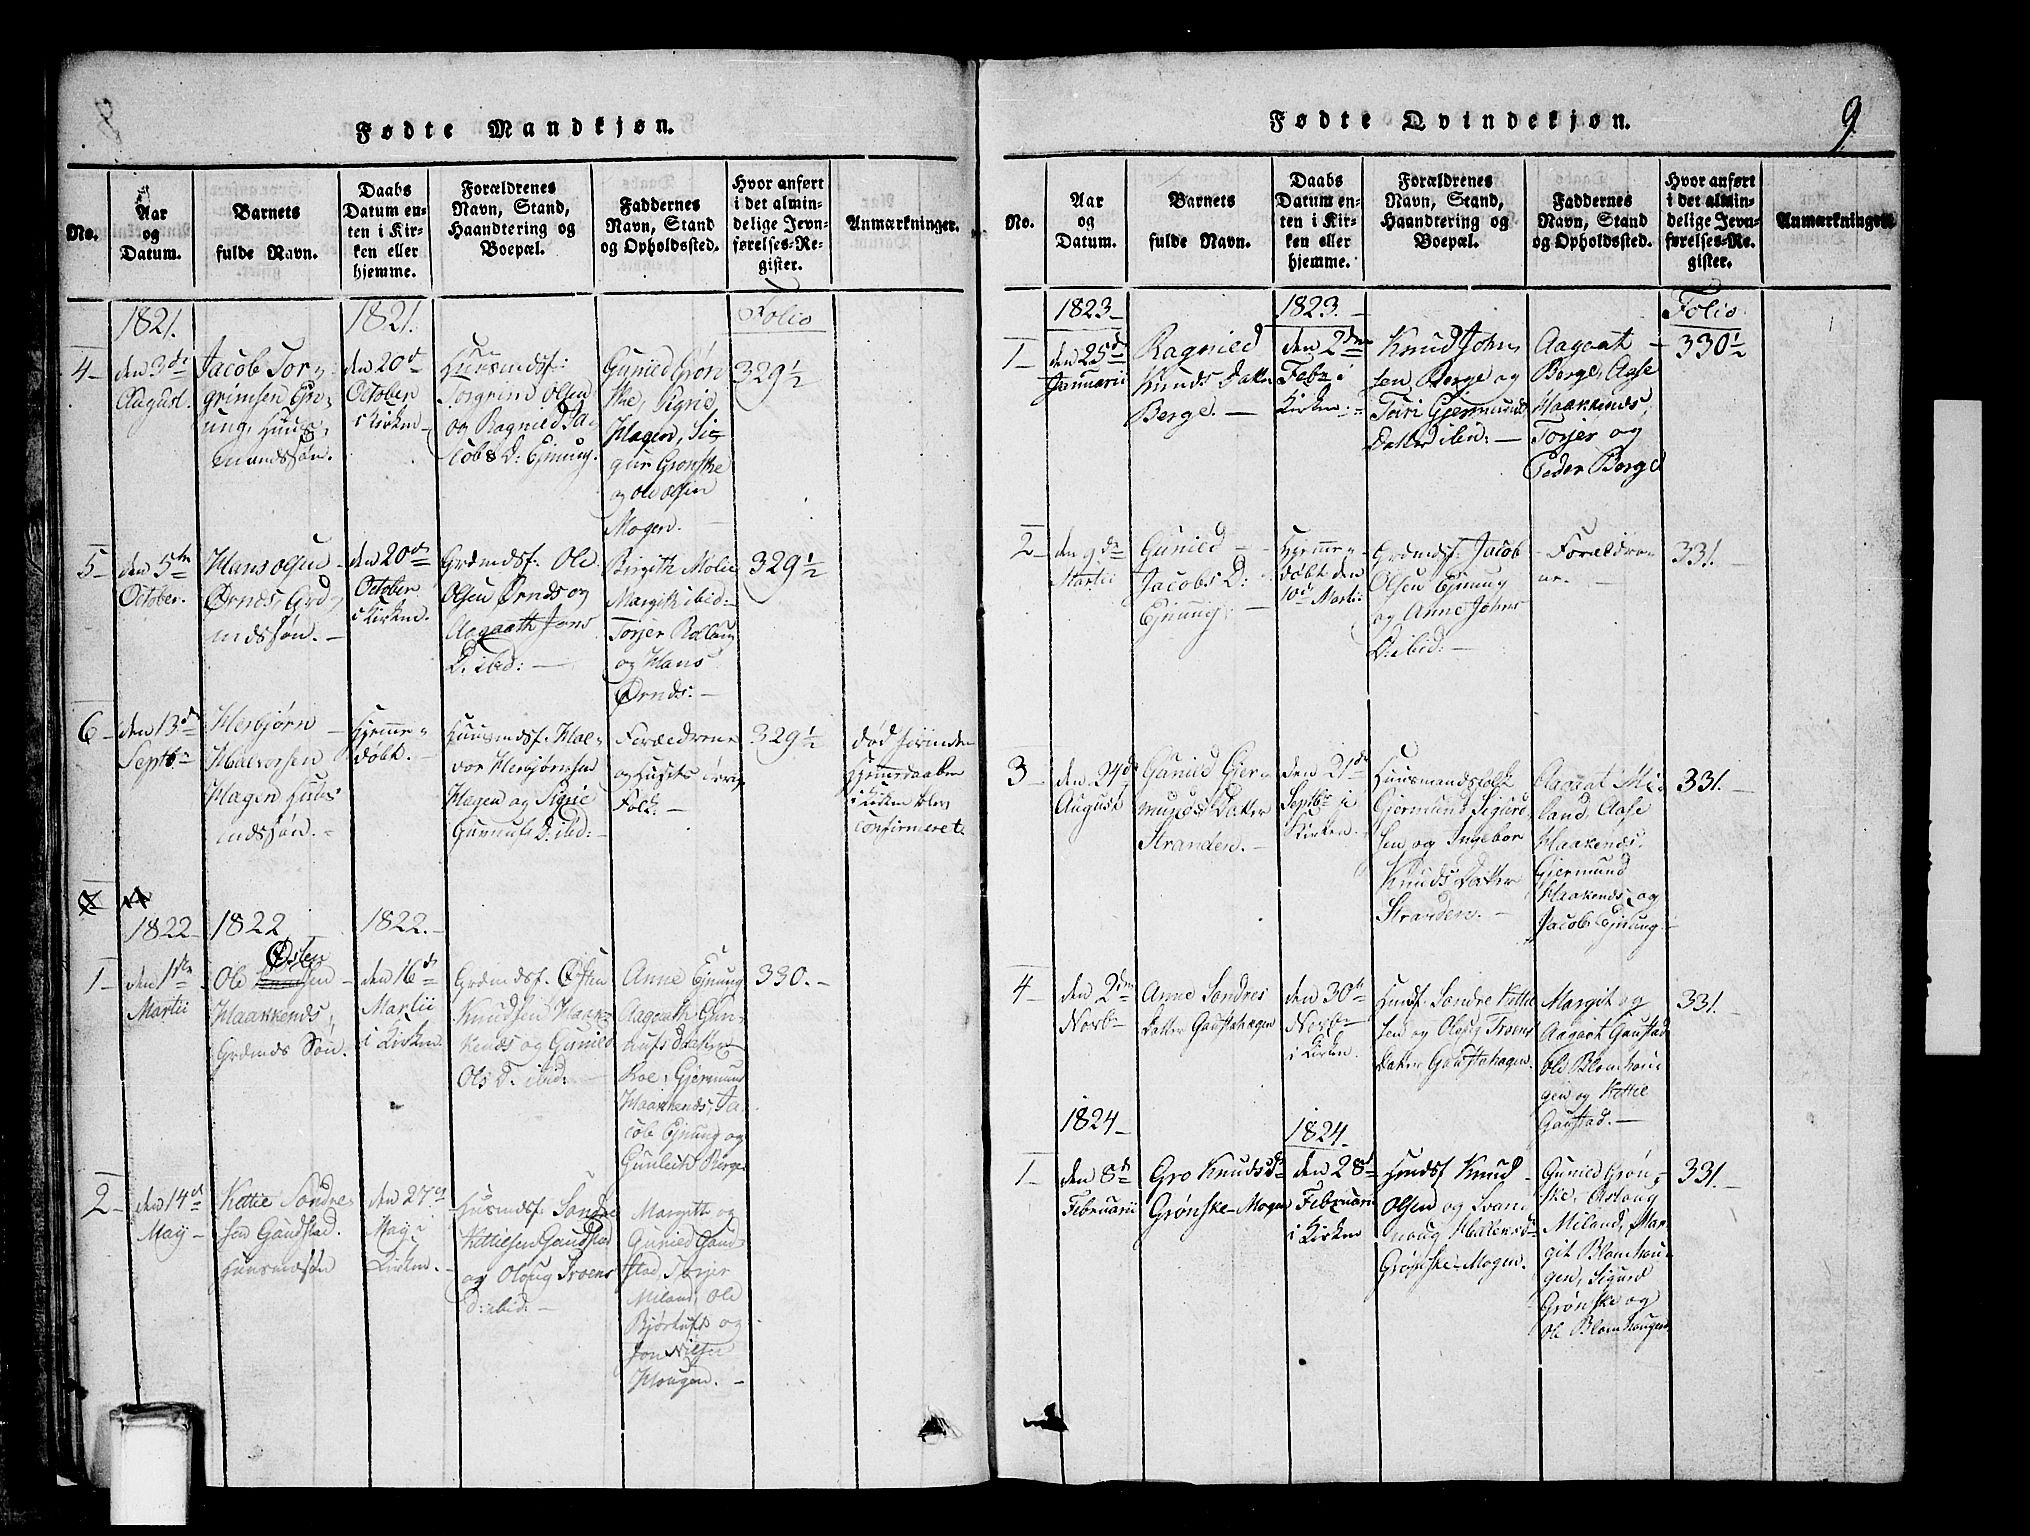 8
Fødte Mandkjøn.
No.
Aar
og
Datum.
Barnets
fulde Navn.
Daabs
Datum en-
ten i Kir-
ken eller
hjemme.
Forældrenes
Navn, Stand,
Haandtering og
Boepæl.
Faddernes
Navn, Stand
og Opholdssted.
Hvor anført
i det almin-
delige Jevn-
førelses-Re-
gister.
Anmærkninger.
1821.
1821.
Folio
4
den 3de
August.
Jacob Tor-
grimsen
Huus-
mandssøn.
den 20de
October
i Kirken
Huusmdsf:
Torgrim Olsen
og Ragnied Ja-
cobs D: Ejnung.
Gunied Grøn
ske, Sigrie
Hagen, Si-
gur Grønske
og Ole Olsen
Mogen.
329½
5
den 5te
October.
Hans Olsen
Ørnes Grd
mdssøn.
den 20de
October
i Kirken
Grdmdsf. Ole
Olsen Ørnes og
Aagaath Jons
D. ibid:
Birgith
Margith ibid:
Torjer
og Hans
Ørnes.
329½
6
den 13de
Septbr
Herbjørn
Halvorsen
Hagen Huus
mdssøn.
Hjemme-
døbt.
Huusmdsf. Hal-
vor Herbjørnsen
Hagen og Sigrie
D: ibid:
Forældrene
og Husets
Folk.
329½
død førinden
Hjemmedaaben
i Kirken blev
confirmeret.
1822
1822
1822.
1
den 1ste
Martii
Ole Østen
sen
Haakkends,
Grdmds Søn.
den 16de
Martii
i Kirken
Grdmdsf. Østen
Knudsen Haak-
kends og Gunied
Ols D. ibid.
Anne Ejnung
Aagaath Gun-
Datter
Gjermund
Haakkends, Ja-
cob Ejnung og
Gunleik Berge
330.
2
den 14de
May
Kittil Sondre
sen Gaudstad.
Huusmdsøn
den 27de
May i
Kirken.
Huusmdsf: Sondre
Kittilsen Gaudstad
og Olaug Troens
D: ibid:
Margith og
Gunied Gaud
stad, Torjer
Miland, Ole
og
Jon Nilsen
Hougen.
9
Fødte Qvindekjøn.
No.
Aar
og
Datum.
Barnets
fulde Navn.
Daabs
Datum en-
ten i Kir-
ken eller
hjemme.
Forældrenes
Navn, Stand,
Haandtering og
Boepæl.
Faddernes
Navn, Stand
og Opholdssted.
Hvor anført
i det almin-
delige Jevn-
førelses-Re-
gister.
Anmærkninger
1823
1823.
Folio
1
den 25de
Januarii
Ragnied
Knuds Datter
Berge.
den 2den
Febr i
Kirken
Knud John-
sen Berge og
Gjermunds
Datter ibid:
Aagaat
Berge, Aase
Haakkends,
Torjer og
Peder Berge
330½
2
den 9de
Martii
Gunied
Jacobs D:
Ejnung
Hjemme-
døbt den
10de Martii
Grdmdsf: Jacob
Olsen Ejnung
og Anne Johns
D: ibid:
Forældre-
ne.
331.
3
den 24de
August
Gunied Gjer-
munds Datter
Stranden.
den 21de
Septbr i
Kirken.
Huusmandsfolk
Gjermund Sigurd
sen og Ingebor
Knuds Datter
Stranden.
Aagaat Mi-
land, Aase
Haakends.
Gjermund
Haakends og
Jacob Ejnung
331.
4
den 2den
Novbr
Anne Sondres
Datter Gaustahagen
den 30te
Novbr
i Kirken.
Hmdsf. Sondre Kittil
sen og Olaug Troens
Datter Gaustahagen.
Margit og
Aagaat Gaustad
Ole Blomhou
gen og Kittil
Gaustad.
331.
1824
1824.
1
den 8de
Februarii
Gro Knudsd
Grønske-Mogen
den 28de
Februarii
i Kirken
Hmdsf. Knud
Olsen og Svan
oug Halvorsd
Grønske-Mogen.
Gunied Grøn-
ske, Aslaug
Miland, Mar-
git Blomhou-
gen, Sigurd
Grønske og
Ole Blomhougen
331.